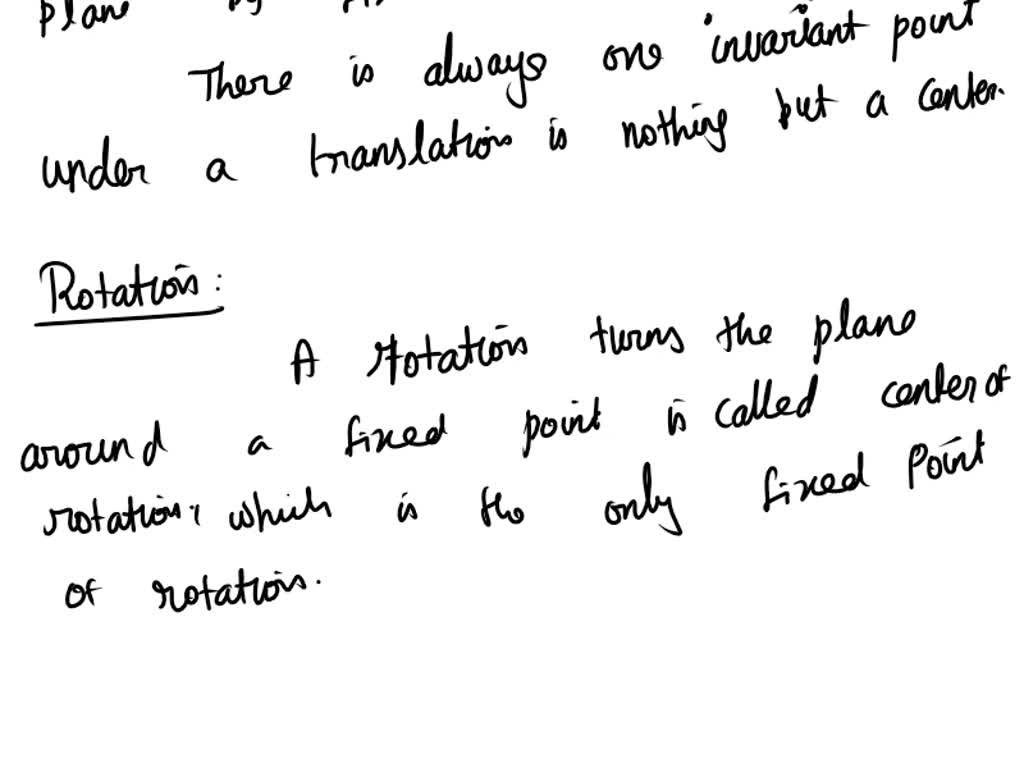 plane by
There is always one invariant point
under a translation is nothing but a center.
Rotation:
A rotation turns the plane
around a fixed point is called center of
rotation, which is the only fixed point
of rotation.